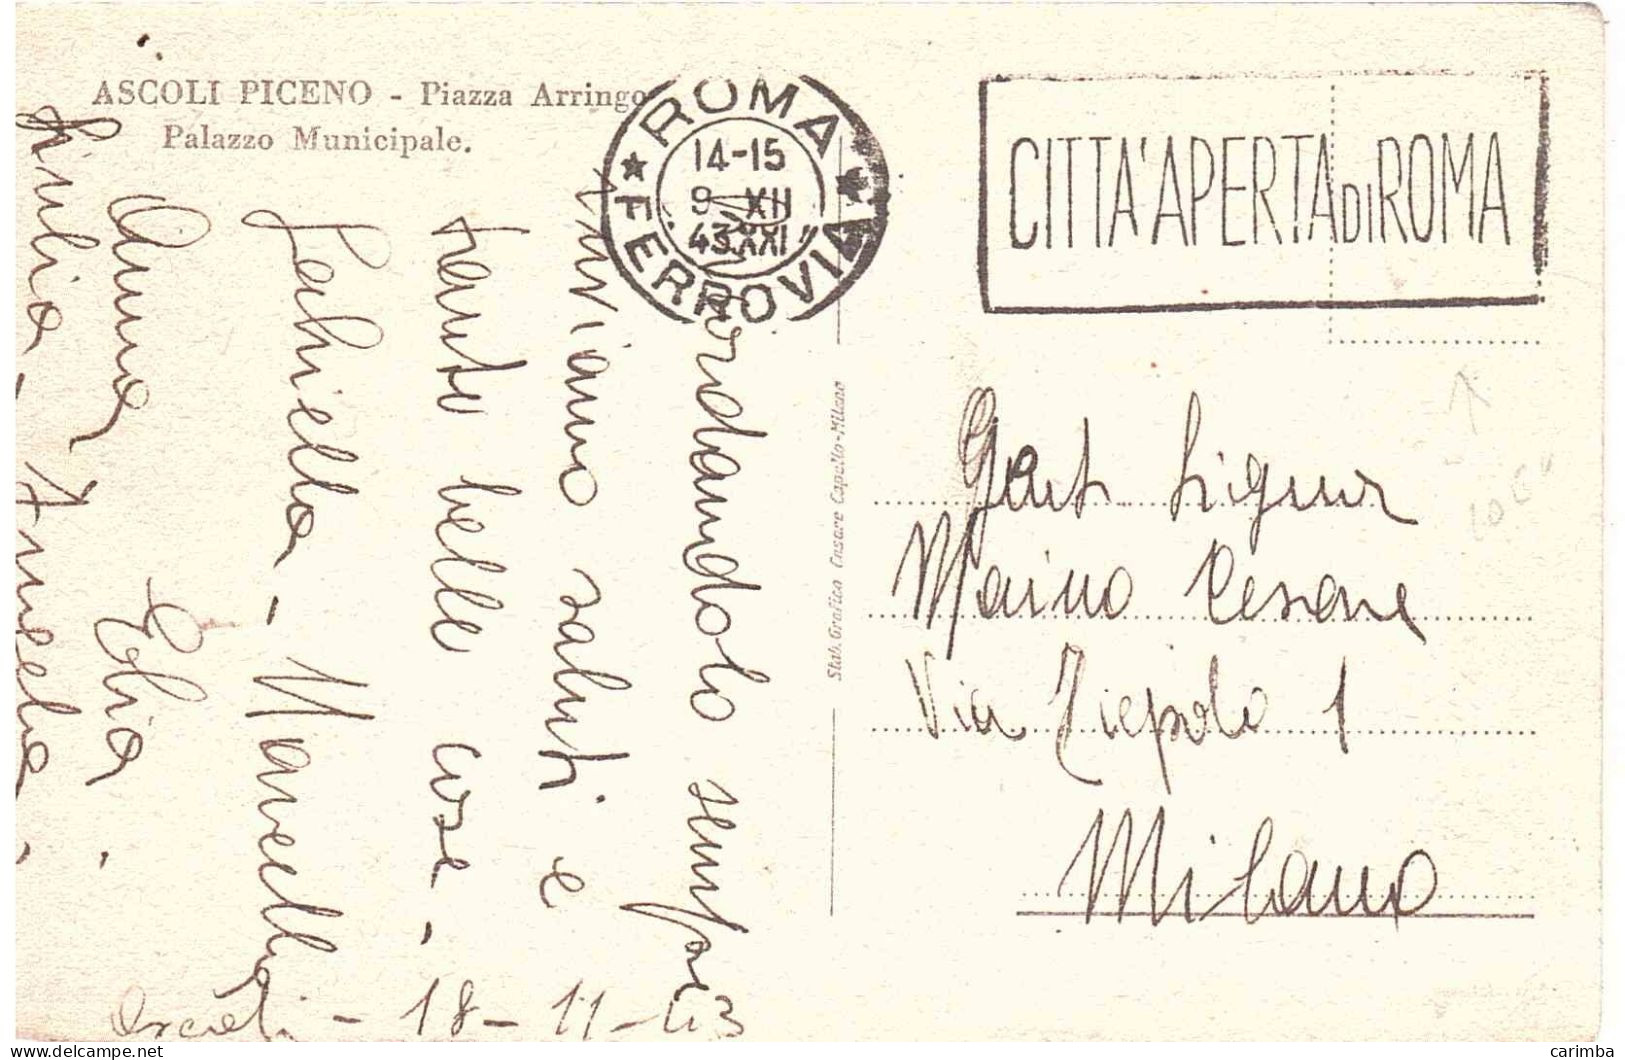 ASCOLI PICENO - Piazza Arringo
Palazzo Municipale.
ROMA
14-15
9 XII
43 XXI
FERROVIA
CITTA' APERTA DI ROMA
Ricordandolo sempre
inviamo saluti e
tante belle cose.
Marcella
Anna
Giulia. Amelia.
Ascoli - 18-11-43
Stab. Grafico Cesare Capello-Milano
Gent. Signor
Marino Cesare
Via Tiepolo 1
Milano
carimba